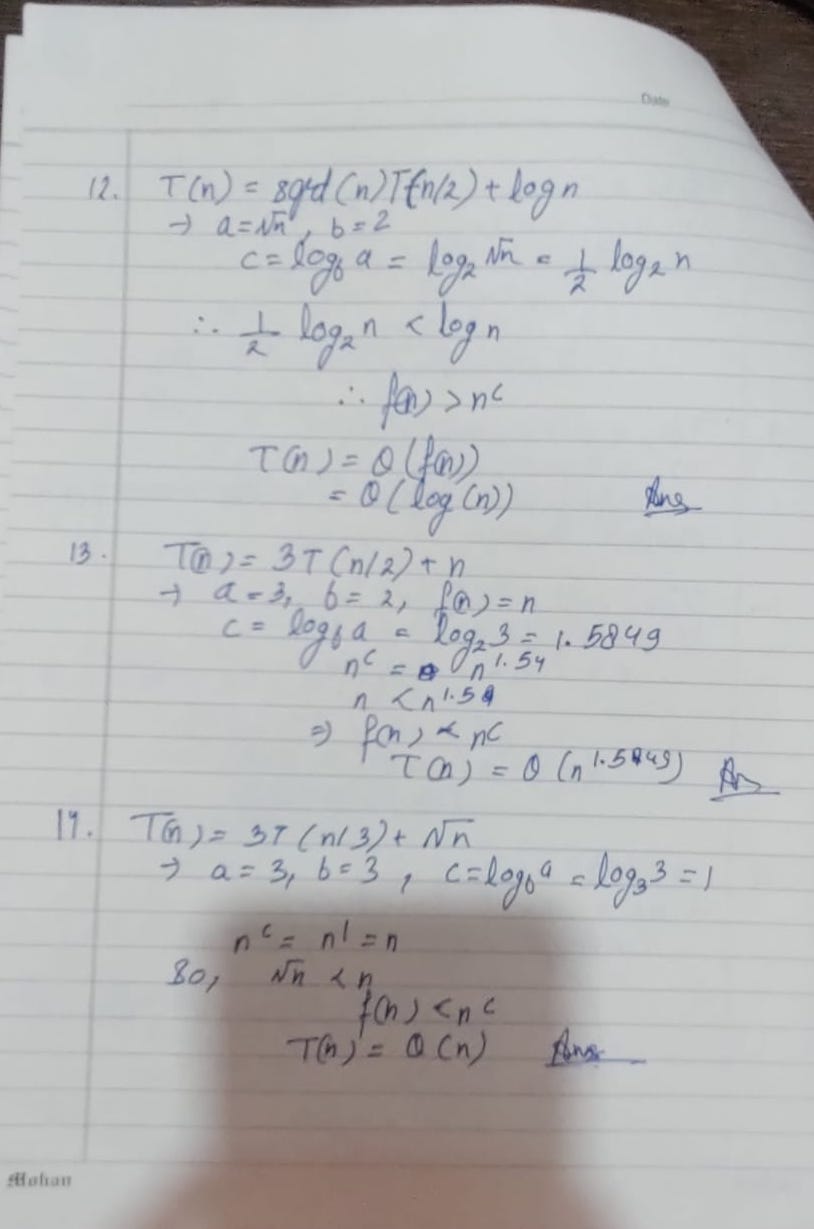 Date
12. T(n) = sqrt(n)T(n/2) + log n
→ a = √n, b = 2
c = log_b a = log₂ √n = 1/2 log₂ n
∴ 1/2 log₂ n < log n
∴ f(n) > n^c
T(n) = θ(f(n))
= θ(log(n)) Ans
13. T(n) = 3T(n/2) + n
→ a = 3, b = 2, f(n) = n
c = log_b a = log₂ 3 = 1.5849
n^c = n^1.54
n < n^1.5
⇒ f(n) < n^c
T(n) = θ(n^1.5849) Ans
14. T(n) = 3T(n/3) + √n
→ a = 3, b = 3, c = log_b a = log₃ 3 = 1
n^c = n^1 = n
So, √n < n
f(n) < n^c
T(n) = θ(n) Ans
Mohan